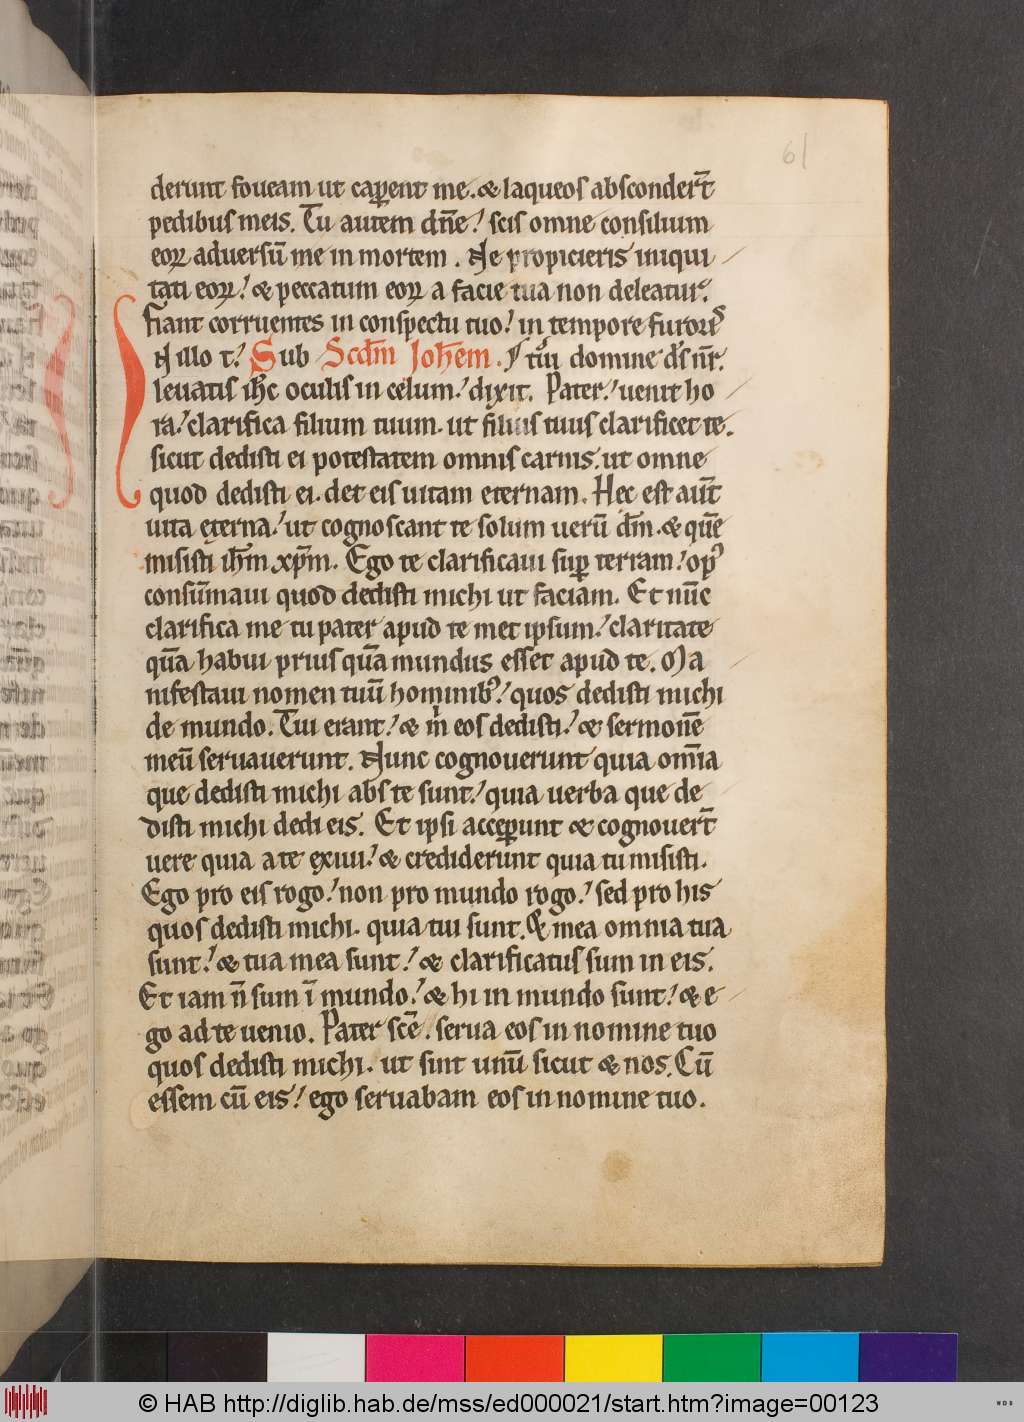 61
derunt foueam ut caꝑent me. & laqueos absconder̄t
pedibus meis. Tu autem dn̄e! scis omne consilium
eoꝝ aduersū me in mortem. Ne propicieris iniqui
tati eoꝝ! & peccatum eoꝝ a facie tua non deleatur.
fiant corruentes in conspectu tuo! in tempore furoris
N illo t! Sub Scdm̄ Joh̄em. tui domine ds̄ nr̄.
leuatis ih̄c oculis in celum! dixit. Pater! uenit ho
ra! clarifica filium tuum. ut filius tuus clarificet te.
sicut dedisti ei potestatem omnis carnis. ut omne
quod dedisti ei. det eis uitam eternam. Hec est aūt
uita ęterna! ut cognoscant te solum uerū dm̄. & quē
misisti ih̄m xp̄m. Ego te clarificaui suꝑ terram! opꝰ
consūmaui quod dedisti michi ut faciam. Et nūc
clarifica me tu pater apud te met ipsum! claritate
quā habui prius quā mundus esset apud te. Ma
nifestaui nomen tuū hominibꝰ! quos dedisti michi
de mundo. Tui erant! & m̄ eos dedisti! & sermonē
meū seruauerunt. Nunc cognouerunt quia om̄ia
que dedisti michi abs te sunt! quia uerba que de
disti michi dedi eis. Et ipsi acceꝑunt & cognouer̄t
uere quia a te exiui! & crediderunt quia tu misisti.
Ego pro eis rogo! non pro mundo rogo! sed pro his
quos dedisti michi. quia tui sunt. & mea omnia tua
sunt! & tua mea sunt! & clarificatus sum in eis.
Et iam n̄ sum ī mundo! & hi in mundo sunt! & e
go ad te uenio. Pater scē. serua eos in nomine tuo
quos dedisti michi. ut sint unū sicut & nos. Cū
essem cū eis! ego seruabam eos in nomine tuo.
© HAB http://diglib.hab.de/mss/ed000021/start.htm?image=00123